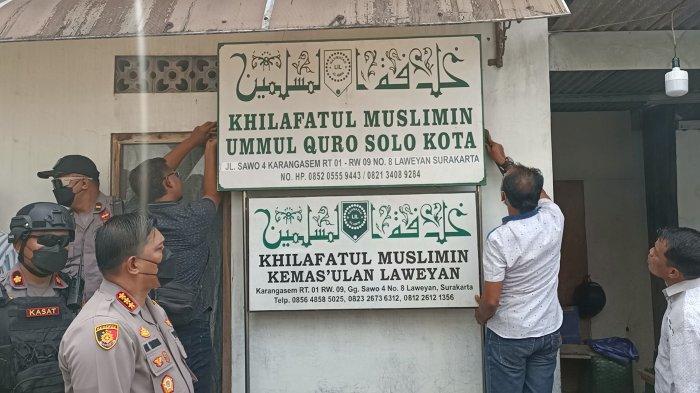 خلافة المسلمين
KHILAFATUL MUSLIMIN
UMMUL QURO SOLO KOTA
JL. SAWO 4 KARANGASEM RT 01 - RW 09 NO. 8 LAWEYAN SURAKARTA
NO. HP. 0852 0555 9443 / 0821 3408 9284
خلافة المسلمين
KHILAFATUL MUSLIMIN
KEMAS'ULAN LAWEYAN
Karangasem RT. 01 RW. 09, Gg. Sawo 4 No. 8 Laweyan, Surakarta
Telp. 0856 4858 5025, 0823 2673 6312, 0812 2612 1356
KASAT